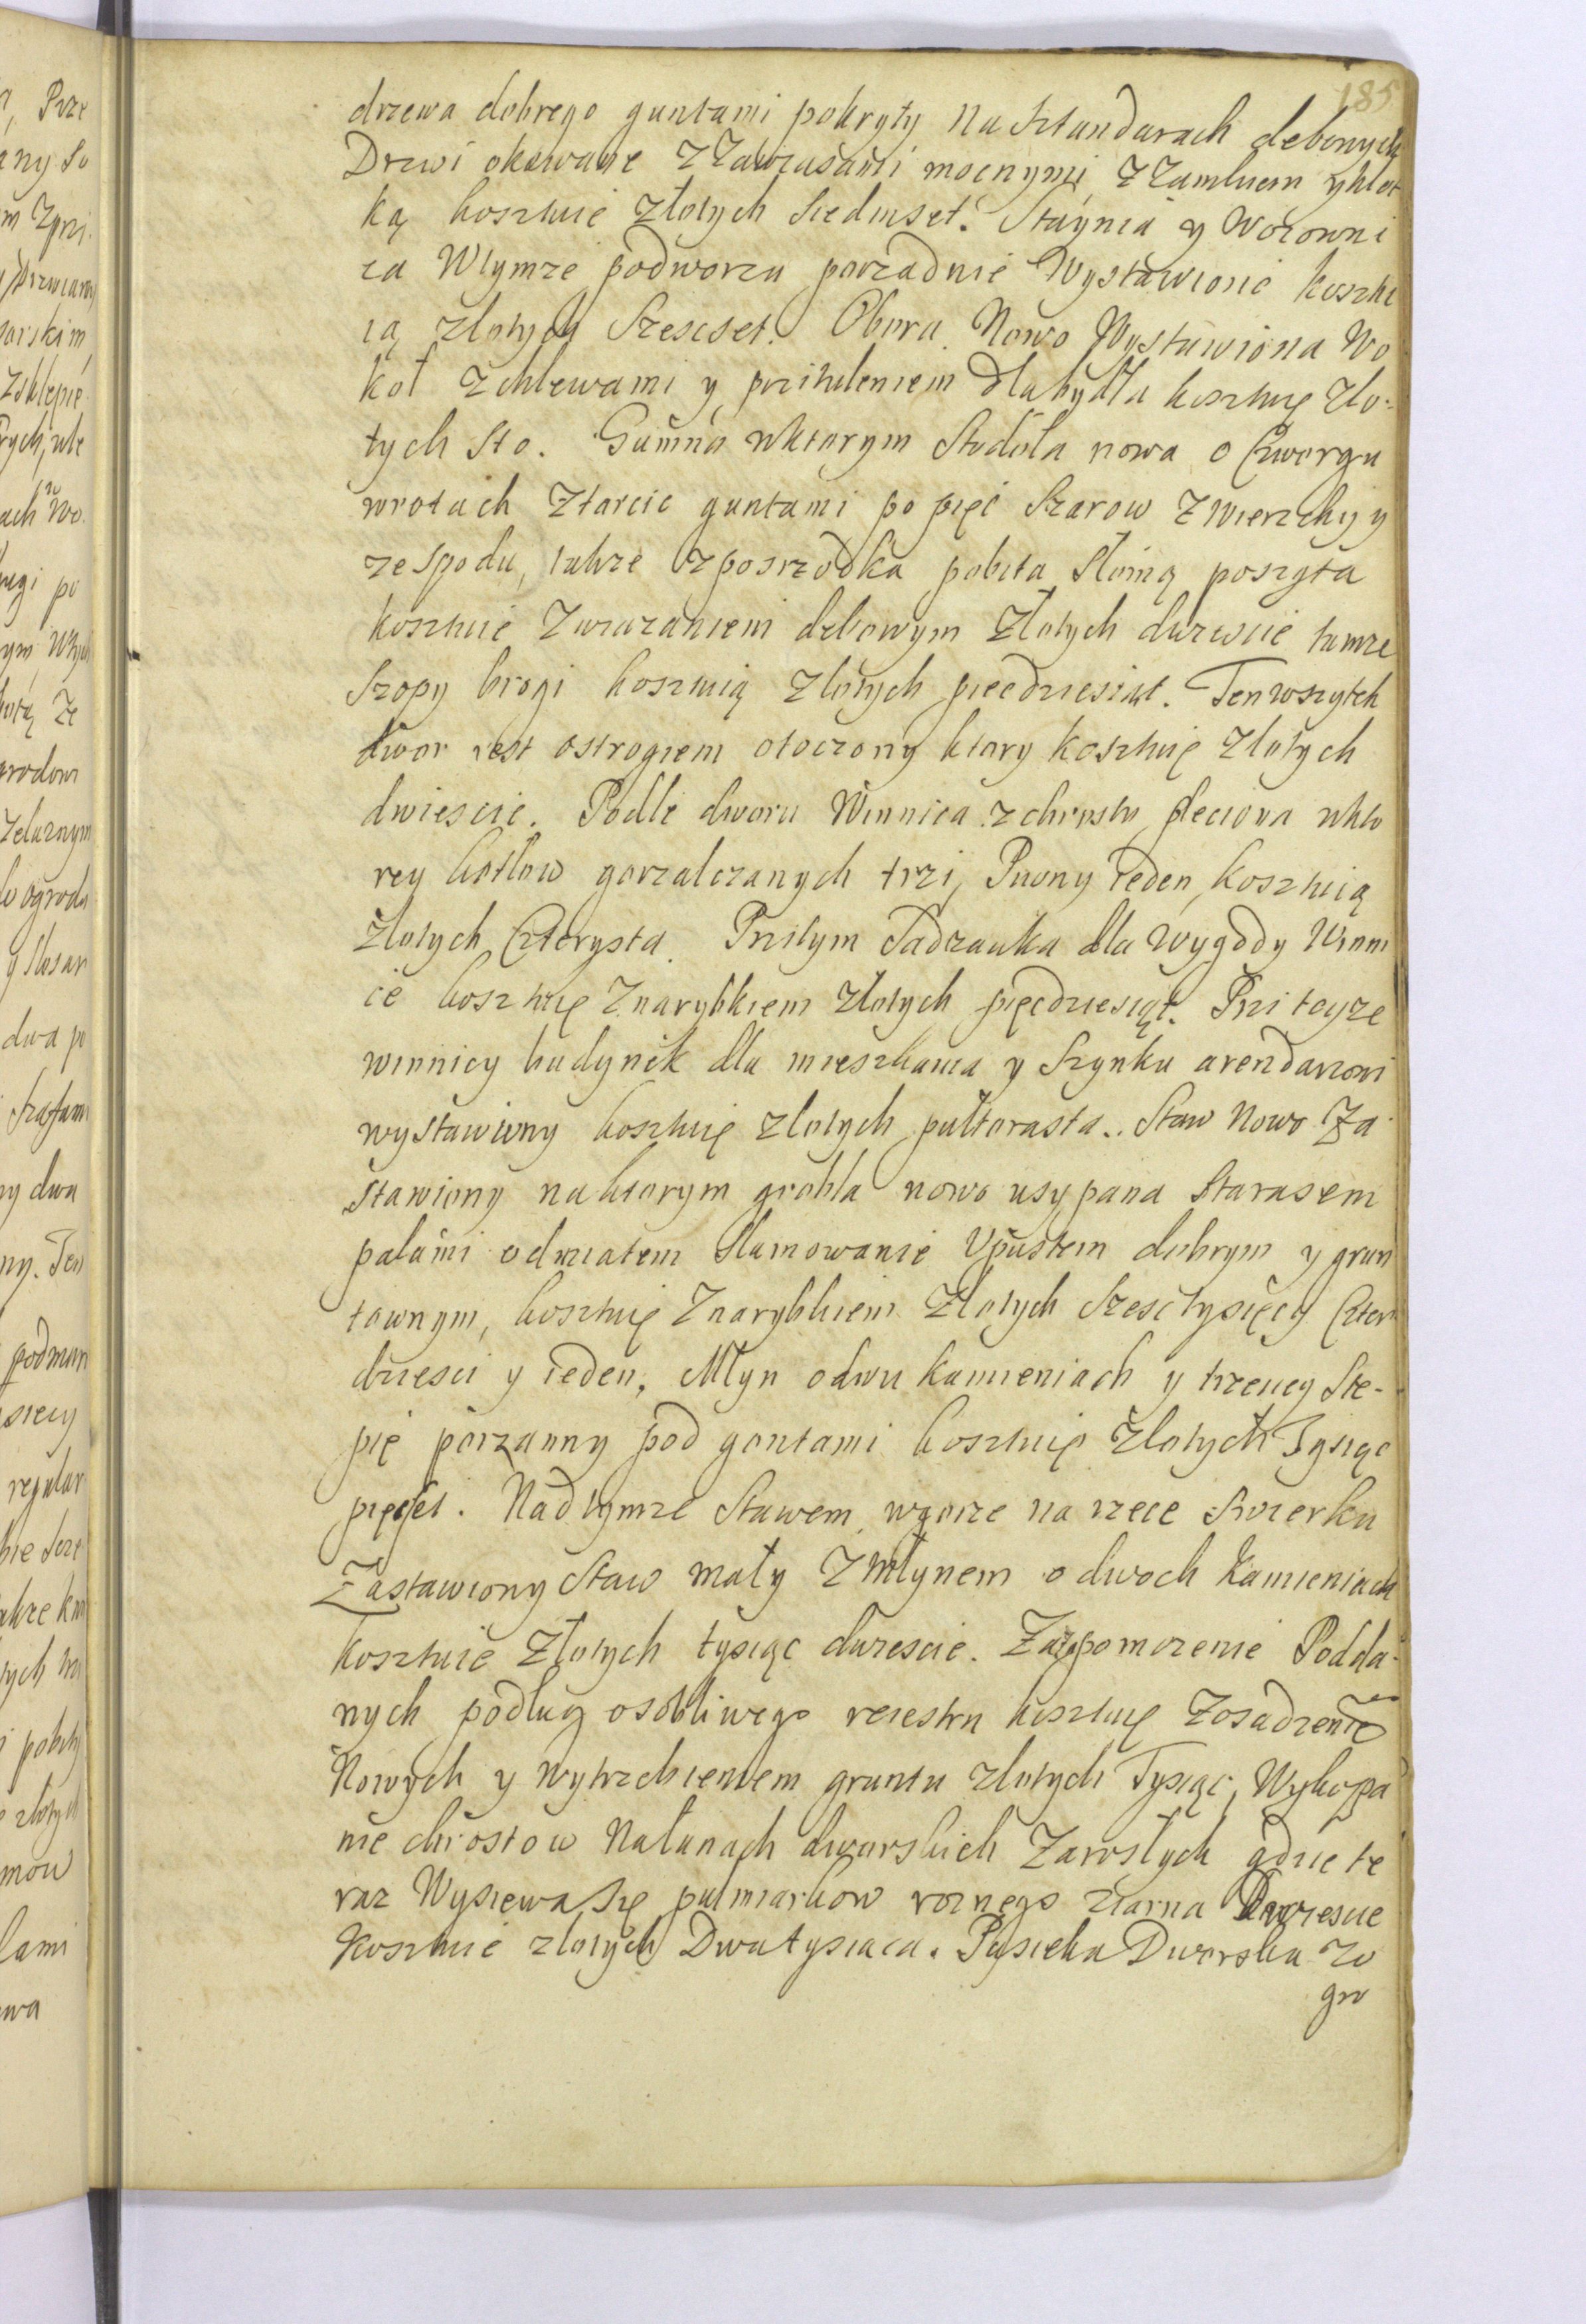 185
drzewa dobrego guntami pokryty na sztandarach debowych
Drzwi okowane z Zawiasami mocnymi z Zamkiem y klot
ką kosztuie złotych siedmset. Staynia y Wozowni
ca Wtymze podworzu porządnie Wystawione koszto
ią złotych Szescset. Obora Nowo Wystawiona Wo
koł z chlewami y przituleniem dla bydła kosztuię zło-
tych sto. Gumna wktorym Stodoła nowa o Czworgu
wrotach z tarcic guntami po pięć Szarow z wierzchu y
ze spodu, takze z posrzodka pobita Słomą poszyta
kosztuie z wiązaniem debowym złotych dwiescie tamze
Szopy brogi kosztuią złotych piecdziesiąt. Ten wszytek
dwor iest ostrogiem otoczony ktory kosztuię złotych
dwiescie. Podle dworu Winnica z chrostu pleciona wkto
rey kotłow gorzalczanych trzi, Piwny ieden, kosztuią
złotych Czterysta. Przitym Sadzawka dla wygody Winni
ce kosztuię z narybkiem złotych pięcdziesiąt. Przi teyze
winnicy budynek dla mieszkania y Szynku arendarzowi
wystawiony kosztuię złotych pułtorasta.. Staw Nowo Za
stawiony naktorym grobla nowo usypana starasem
palami Upustem dobrym y grun
townym, kosztuię z narybkiem złotych Szesctysięcy Czter
dziesci y ieden, Młyn o dwu kamieniach y trzeciey Ste-
pię pod gontami kosztuię złotych Tysiąc
pięcset. Nadtymze Stawem wgorze na rzece
Zastawiony Staw mały z młynem o dwoch kamieniach
kosztuie złotych tysiąc dwiescie. Zapomozenie Podda-
nych podług osobliwego reiestru kosztuię Zosadzenie
Nowych y wytrzebieniem gruntu złotych Tysiąc, Wykopa
nie chrostow Nałanach dworskich Zarosłych gdzie te
raz Wysiewa Się pulmiarkow roznego ziarna Dwiescie
kosztuie złotych Dwa tysiąca. Pasieka Dworska zo
gro